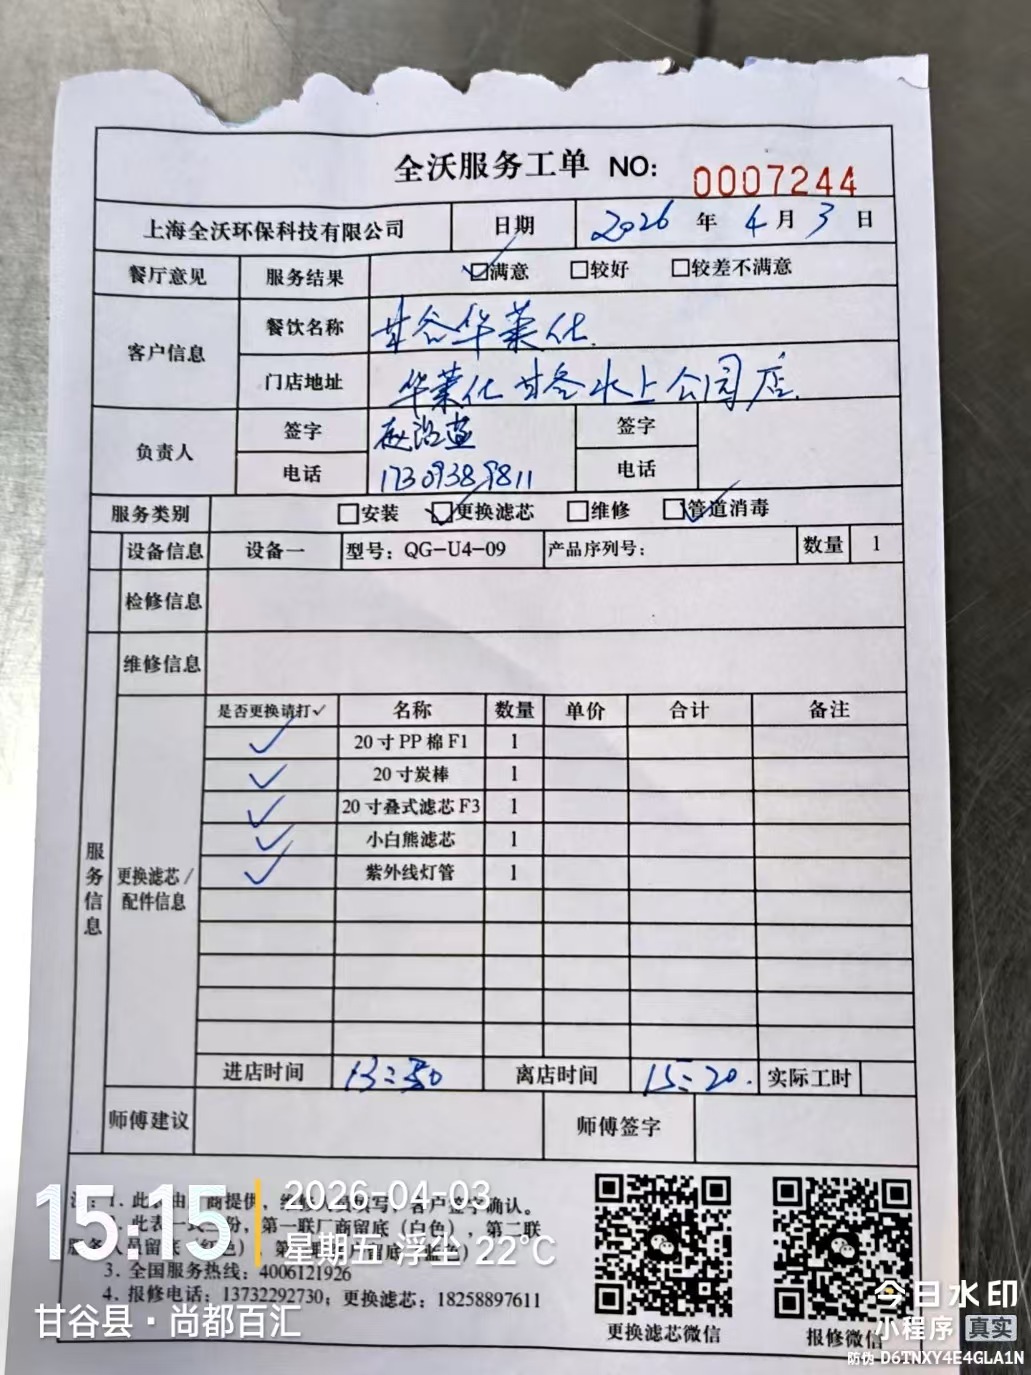 全沃服务工单 NO: 0007244
上海全沃环保科技有限公司 日期 2026 年 4 月 3 日
餐厅意见 服务结果 ☑满意 □较好 □较差不满意
客户信息 餐饮名称 甘谷华莱仕.
门店地址 华莱仕甘谷水上公园店.
负责人 签字 签字
电话 17309389811 电话
服务类别 □安装 ☑更换滤芯 □维修 ☑管道消毒
设备信息 设备一 型号: QG-U4-09 产品序列号: 数量 1
检修信息
维修信息
服务信息
更换滤芯/
配件信息
是否更换请打✓ 名称 数量 单价 合计 备注
✓ 20寸PP棉F1 1
✓ 20寸炭棒 1
✓ 20寸叠式滤芯F3 1
✓ 小白熊滤芯 1
✓ 紫外线灯管 1
进店时间 13:50 离店时间 15:20. 实际工时
师傅建议 师傅签字
注: 1. 此表由厂商提供, 客户签字确认。
此表一式三份, 第一联厂商留底(白色), 第二联
服务人员留底(红色)
3. 全国服务热线: 4006121926
4. 报修电话: 13732292730; 更换滤芯: 18258897611
更换滤芯微信
报修微信
15:15
2026-04-03
星期五·浮尘 22℃
甘谷县·尚都百汇
今日水印
小程序 真实
防伪 D6TNXY4E4GLA1N